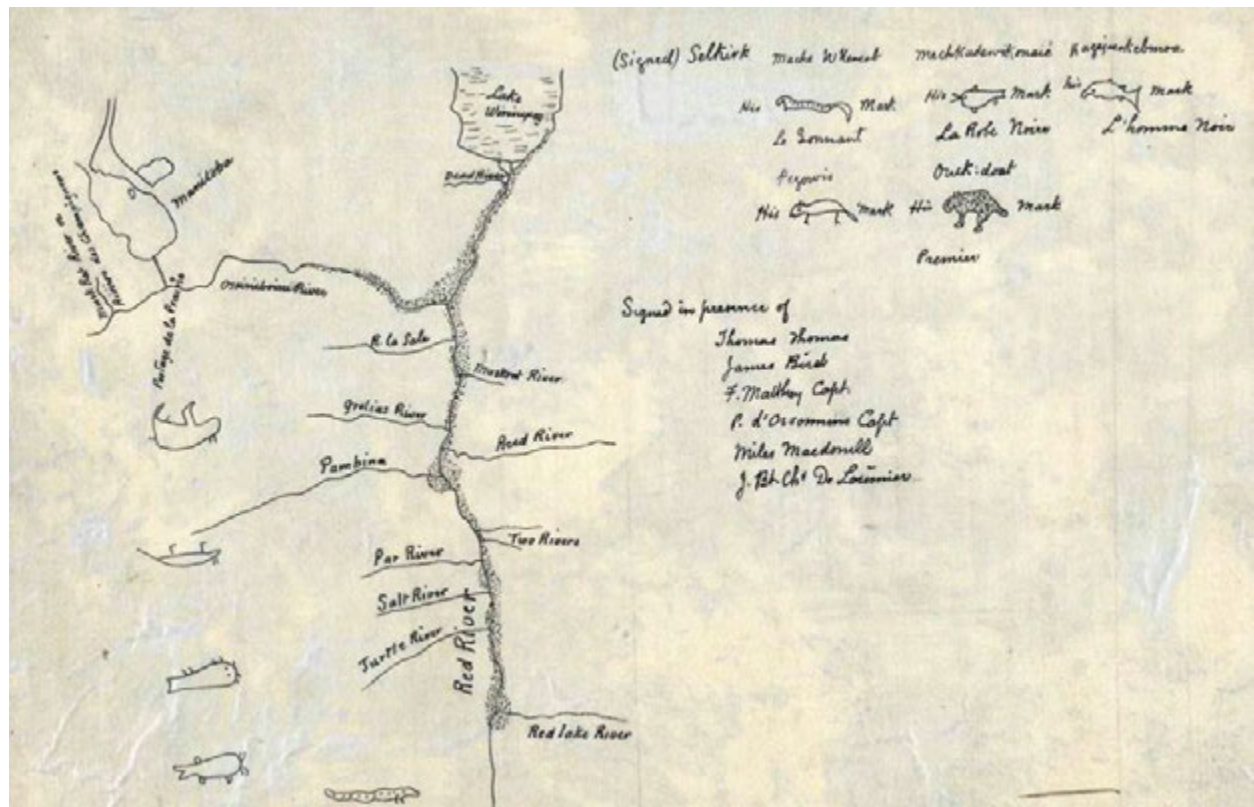 (Signed) Selkirk
Mache Wheseab
Mechkadewikonaié
Kayajieskebinoa
His Mark
His Mark
his Mark
Le Sonnant
La Robe Noire
L'homme Noir
Pegowis
Ouck-doat
His Mark
His Mark
Premier
Signed in presence of
Thomas Thomas
James Bird
F. Matthey Capt.
P. d'Orsonnens Capt
Miles Macdonell
J. Bt. Chs De Lorimier
Lake Winnipeg
Dead River
Manitoba
Musk Rat River or
Rivière des Champignons
Portage de la Prairie
Ossiniboine River
R. la Sale
Muskrat River
Reed River
Pambina
Two Rivers
Par River
Salt River
Turtle River
Red River
Red lake River